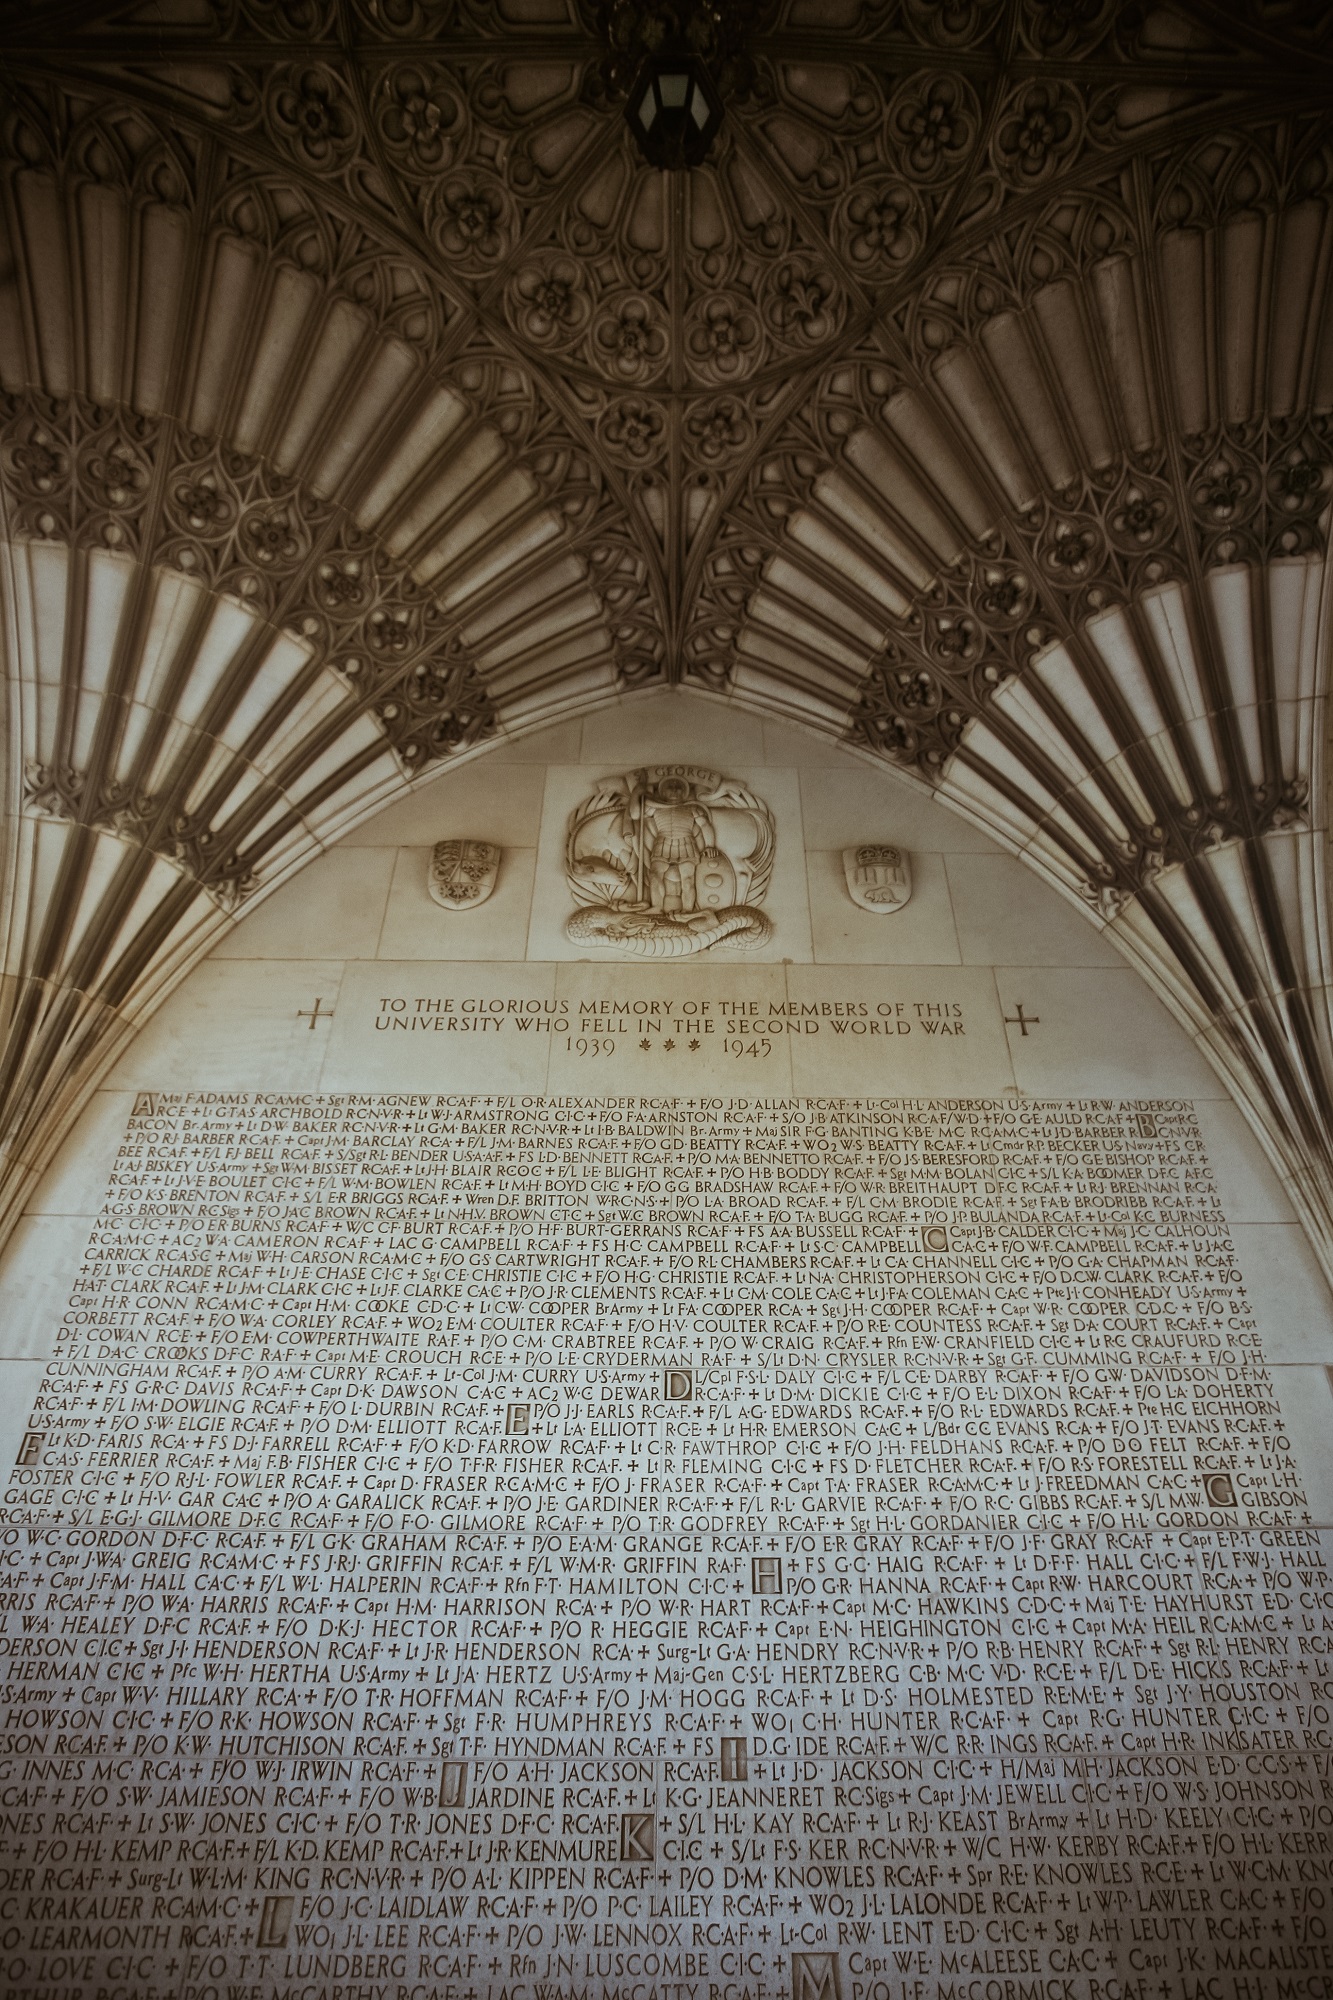 GEORGE
TO THE GLORIOUS MEMORY OF THE MEMBERS OF THIS
UNIVERSITY WHO FELL IN THE SECOND WORLD WAR
1939 1945
A Maj F·ADAMS R·C·A·M·C + Sgt R·M·AGNEW R·C·A·F + F/L O·R·ALEXANDER R·C·A·F· + F/O J·D·ALLAN R·C·A·F· + Lt-Col H·L·ANDERSON U·S·Army + Lt R·W· ANDERSON
R·C·E· + Lt G·T·A·S· ARCHBOLD R·C·N·V·R· + Lt W·J· ARMSTRONG C·I·C· + F/O F·A· ARNSTON R·C·A·F· + S/O J·B·ATKINSON R·C·A·F·/W·D· + F/O G·E· AULD R·C·A·F· + B Capt R·C·
BACON Br.Army + Lt D·W· BAKER R·C·N·V·R· + Lt G·M· BAKER R·C·N·V·R· + Lt J·B·BALDWIN Br.Army + Maj SIR F·G·BANTING K·B·E· M·C· R·C·A·M·C· + Lt J·D·BARBER R·C·N·V·R·
+ P/O R·J· BARBER R·C·A·F· + Capt J·M· BARCLAY R·C·A· + F/L J·M· BARNES R·C·A·F· + F/O G·D· BEATTY R·C·A·F· + WO2 W·S· BEATTY R·C·A·F· + Lt Cmdr R·P· BECKER U·S·Navy + FS C·R·
BEE R·C·A·F· + F/L F·J· BELL R·C·A·F· + S/Sgt R·L· BENDER U·S·A·A·F· + FS L·D· BENNETT R·C·A·F· + P/O M·A· BENNETTO R·C·A·F· + F/O J·S· BERESFORD R·C·A·F· + F/O G·E· BISHOP R·C·A·F· +
Lt A·J· BISKEY U·S·Army + Sgt W·M· BISSET R·C·A·F· + Lt J·H· BLAIR R·C·O·C· + F/L L·E· BLIGHT R·C·A·F· + P/O H·B· BODDY R·C·A·F· + Sgt M·M· BOLAN C·I·C· + S/L K·A· BOOMER D·F·C· A·F·C·
R·C·A·F· + Lt J·V·E· BOULET C·I·C· + F/L W·M· BOWLEN R·C·A·F· + Lt M·H· BOYD C·I·C· + F/O G·G· BRADSHAW R·C·A·F· + F/O W·R· BREITHAUPT D·F·C· R·C·A·F· + Lt R·J· BRENNAN R·C·A·
+ F/O K·S· BRENTON R·C·A·F· + S/L E·R· BRIGGS R·C·A·F· + Wren D·F· BRITTON W·R·C·N·S· + P/O L·A· BROAD R·C·A·F· + F/L C·M· BRODIE R·C·A·F· + Sgt F·A·B· BRODRIBB R·C·A·F· + Lt
A·G·S· BROWN R·C·Sigs + F/O J·A·C· BROWN R·C·A·F· + Lt N·H·V· BROWN C·T·C· + Sgt W·C· BROWN R·C·A·F· + F/O T·A· BUGG R·C·A·F· + P/O J·P· BULANDA R·C·A·F· + Lt-Col K·C· BURNESS
M·C· C·I·C· + P/O E·R· BURNS R·C·A·F· + W/C C·F· BURT R·C·A·F· + P/O H·F· BURT-GERRANS R·C·A·F· + FS A·A· BUSSELL R·C·A·F· + C Capt J·B· CALDER C·I·C· + Maj J·C· CALHOUN
R·C·A·M·C· + AC2 W·A· CAMERON R·C·A·F· + LAC G· CAMPBELL R·C·A·F· + FS H·C· CAMPBELL R·C·A·F· + Lt S·C· CAMPBELL C·A·C· + F/O W·F· CAMPBELL R·C·A·F· + Lt J·A·C·
CARRICK R·C·A·S·C· + Maj W·H· CARSON R·C·A·M·C· + F/O G·S· CARTWRIGHT R·C·A·F· + F/O R·L· CHAMBERS R·C·A·F· + Lt C·A· CHANNELL C·I·C· + P/O G·A· CHAPMAN R·C·A·F·
+ F/L W·C· CHARDE R·C·A·F· + Lt J·E· CHASE C·I·C· + Sgt C·E· CHRISTIE C·I·C· + F/O H·G· CHRISTIE R·C·A·F· + Lt N·A· CHRISTOPHERSON C·I·C· + F/O D·C·W· CLARK R·C·A·F· + F/O
H·A·T· CLARK R·C·A·F· + Lt J·M· CLARK C·I·C· + Lt J·F· CLARKE C·A·C· + P/O J·R· CLEMENTS R·C·A·F· + Lt G·M· COLE C·A·C· + Lt J·F·A· COLEMAN C·A·C· + Pte J·I· CONHEADY U·S·Army +
Capt H·R· CONN R·C·A·M·C· + Capt H·M· COOKE C·D·C· + Lt C·W· COOPER Br.Army + Lt F·A· COOPER R·C·A· + Sgt J·H· COOPER R·C·A·F· + Capt W·R· COOPER C·D·C· + F/O B·S·
CORBETT R·C·A·F· + F/O W·A· CORLEY R·C·A·F· + WO2 E·M· COULTER R·C·A·F· + F/O H·V· COULTER R·C·A·F· + P/O R·E· COUNTESS R·C·A·F· + Sgt D·A· COURT R·C·A·F· + Capt
D·L· COWAN R·C·E· + F/O E·M· COWPERTHWAITE R·A·F· + P/O C·M· CRABTREE R·C·A·F· + P/O W· CRAIG R·C·A·F· + Rfn E·W· CRANFIELD C·I·C· + Lt R·C· CRAUFURD R·C·E·
+ F/L D·A·C· CROOKS D·F·C· R·A·F· + Capt M·E· CROUCH R·C·E· + P/O L·E· CRYDERMAN R·A·F· + S/Lt D·N· CRYSLER R·C·N·V·R· + Sgt G·F· CUMMING R·C·A·F· + F/O J·H·
CUNNINGHAM R·C·A·F· + P/O A·M· CURRY R·C·A·F· + Lt-Col J·M· CURRY U·S·Army + D L/Cpl F·S·L· DALY C·I·C· + F/L C·E· DARBY R·C·A·F· + F/O G·W· DAVIDSON D·F·M·
R·C·A·F· + FS G·R·C· DAVIS R·C·A·F· + Capt D·K· DAWSON C·A·C· + AC2 W·C· DEWAR R·C·A·F· + Lt D·M· DICKIE C·I·C· + F/O E·L· DIXON R·C·A·F· + F/O L·A· DOHERTY
R·C·A·F· + F/L J·M· DOWLING R·C·A·F· + F/O L· DURBIN R·C·A·F· + E P/O J·J· EARLS R·C·A·F· + F/L A·G· EDWARDS R·C·A·F· + F/O R·L· EDWARDS R·C·A·F· + Pte H·C· EICHHORN
U·S·Army + F/O S·W· ELGIE R·C·A·F· + P/O D·M· ELLIOTT R·C·A·F· + Lt L·A· ELLIOTT R·C·E· + Lt H·R· EMERSON C·A·C· + L/Bdr C·C· EVANS R·C·A· + F/O J·T· EVANS R·C·A·F· +
F Lt K·D· FARIS R·C·A· + FS D·J· FARRELL R·C·A·F· + F/O K·D· FARROW R·C·A·F· + Lt C·R· FAWTHROP C·I·C· + F/O J·H· FELDHANS R·C·A·F· + P/O D·O· FELT R·C·A·F· + F/O
C·A·S· FERRIER R·C·A·F· + Maj F·B· FISHER C·I·C· + F/O T·F·R· FISHER R·C·A·F· + Lt R· FLEMING C·I·C· + FS D· FLETCHER R·C·A·F· + F/O R·S· FORESTELL R·C·A·F· + Lt J·A·
FOSTER C·I·C· + F/O R·J·L· FOWLER R·C·A·F· + Capt D· FRASER R·C·A·M·C· + F/O J· FRASER R·C·A·F· + Capt T·A· FRASER R·C·A·M·C· + Lt J· FREEDMAN C·A·C· + G Capt L·H·
GAGE C·I·C· + Lt H·V· GAR C·A·C· + P/O A· GARALICK R·C·A·F· + P/O J·E· GARDINER R·C·A·F· + F/L R·L· GARVIE R·C·A·F· + F/O R·C· GIBBS R·C·A·F· + S/L M·W· GIBSON
R·C·A·F· + S/L E·G·J· GILMORE D·F·C· R·C·A·F· + F/O F·O· GILMORE R·C·A·F· + P/O T·R· GODFREY R·C·A·F· + Sgt H·L· GORDANIER C·I·C· + F/O H·L· GORDON R·C·A·F· +
/O W·C· GORDON D·F·C· R·C·A·F· + F/L G·K· GRAHAM R·C·A·F· + P/O E·A·M· GRANGE R·C·A·F· + F/O E·R· GRAY R·C·A·F· + F/O J·F· GRAY R·C·A·F· + Capt E·P·T· GREEN
·I·C· + Capt J·W·A· GREIG R·C·A·M·C· + FS J·R·J· GRIFFIN R·C·A·F· + F/L W·M·R· GRIFFIN R·A·F· H + FS G·C· HAIG R·C·A·F· + Lt D·F·F· HALL C·I·C· + F/L F·W·J· HALL
A·F· + Capt J·F·M· HALL C·A·C· + F/L W·L· HALPERIN R·C·A·F· + Rfn F·T· HAMILTON C·I·C· + P/O G·R· HANNA R·C·A·F· + Capt R·W· HARCOURT R·C·A· + P/O W·P·
RRIS R·C·A·F· + P/O W·A· HARRIS R·C·A·F· + Capt H·M· HARRISON R·C·A· + P/O W·R· HART R·C·A·F· + Capt M·C· HAWKINS C·D·C· + Maj T·E· HAYHURST E·D· C·I·C
L W·A· HEALEY D·F·C· R·C·A·F· + F/O D·K·J· HECTOR R·C·A·F· + P/O R· HEGGIE R·C·A·F· + Capt E·N· HEIGHINGTON C·I·C· + Capt M·A· HEIL R·C·A·M·C· + Lt A·
DERSON C·I·C· + Sgt J·I· HENDERSON R·C·A·F· + Lt J·R· HENDERSON R·C·A· + Surg-Lt G·A· HENDRY R·C·N·V·R· + P/O R·B· HENRY R·C·A·F· + Sgt R·L· HENRY R·C·A
HERMAN C·I·C· + Pfc W·H· HERTHA U·S·Army + Lt J·A· HERTZ U·S·Army + Maj-Gen C·S·L· HERTZBERG C·B· M·C· V·D· R·C·E· + F/L D·E· HICKS R·C·A·F· +
·S·Army + Capt W·V· HILLARY R·C·A· + F/O T·R· HOFFMAN R·C·A·F· + F/O J·M· HOGG R·C·A·F· + Lt D·S· HOLMESTED R·E·M·E· + Sgt J·Y· HOUSTON R·C
HOWSON C·I·C· + F/O R·K· HOWSON R·C·A·F· + Sgt F·R· HUMPHREYS R·C·A·F· + WO1 C·H· HUNTER R·C·A·F· + Capt R·G· HUNTER C·I·C· + F/O
SON R·C·A·F· + P/O K·W· HUTCHISON R·C·A·F· + Sgt T·F· HYNDMAN R·C·A·F· + FS I D·G· IDE R·C·A·F· + W/C R·R· INGS R·C·A·F· + Capt H·R· INKSATER R·C·
G· INNES M·C· R·C·A· + F/O W·J· IRWIN R·C·A·F· + J F/O A·H· JACKSON R·C·A·F· + Lt J·D· JACKSON C·I·C· + H/Maj M·H· JACKSON E·D· C·C·S· + F/
C·A·F· + F/O S·W· JAMIESON R·C·A·F· + F/O W·B· JARDINE R·C·A·F· + Lt K·G· JEANNERET R·C·Sigs + Capt J·M· JEWELL C·I·C· + F/O W·S· JOHNSON R
NES R·C·A·F· + Lt S·W· JONES C·I·C· + F/O T·R· JONES D·F·C· R·C·A·F· K + S/L H·L· KAY R·C·A·F· + Lt R·J· KEAST Br.Army + Lt H·D· KEELY C·I·C· + P/O
+ F/O H·L· KEMP R·C·A·F· + F/L K·D· KEMP R·C·A·F· + Lt J·R· KENMURE C·I·C· + S/Lt F·S· KER R·C·N·V·R· + W/C H·W· KERBY R·C·A·F· + F/O H·L· KERR
DER R·C·A·F· + Surg-Lt W·L·M· KING R·C·N·V·R· + P/O A·L· KIPPEN R·C·A·F· + P/O D·M· KNOWLES R·C·A·F· + Spr R·E· KNOWLES R·C·E· + Lt W·C·M· KNO
C· KRAKAUER R·C·A·M·C· + L F/O J·C· LAIDLAW R·C·A·F· + P/O P·C· LAILEY R·C·A·F· + WO2 J·L· LALONDE R·C·A·F· + Lt W·P· LAWLER C·A·C· + F/O
O· LEARMONTH R·C·A·F· + WO1 J·L· LEE R·C·A·F· + P/O J·W· LENNOX R·C·A·F· + Lt-Col R·W· LENT E·D· C·I·C· + Sgt A·H· LEUTY R·C·A·F· + F/O
O· LOVE C·I·C· + F/O T·T· LUNDBERG R·C·A·F· + Rfn J·N· LUSCOMBE C·I·C· + M Capt W·E· McALEESE C·A·C· + Capt J·K· MACALISTE
ARTHUR R·C·A·F· + F/O W·F· McCARTHY R·C·A·F· + LAC W·A·M· McCATTY R·C·A·F· + P/O J·F· McCORMICK R·C·A·F· + LAC H·J· McCR